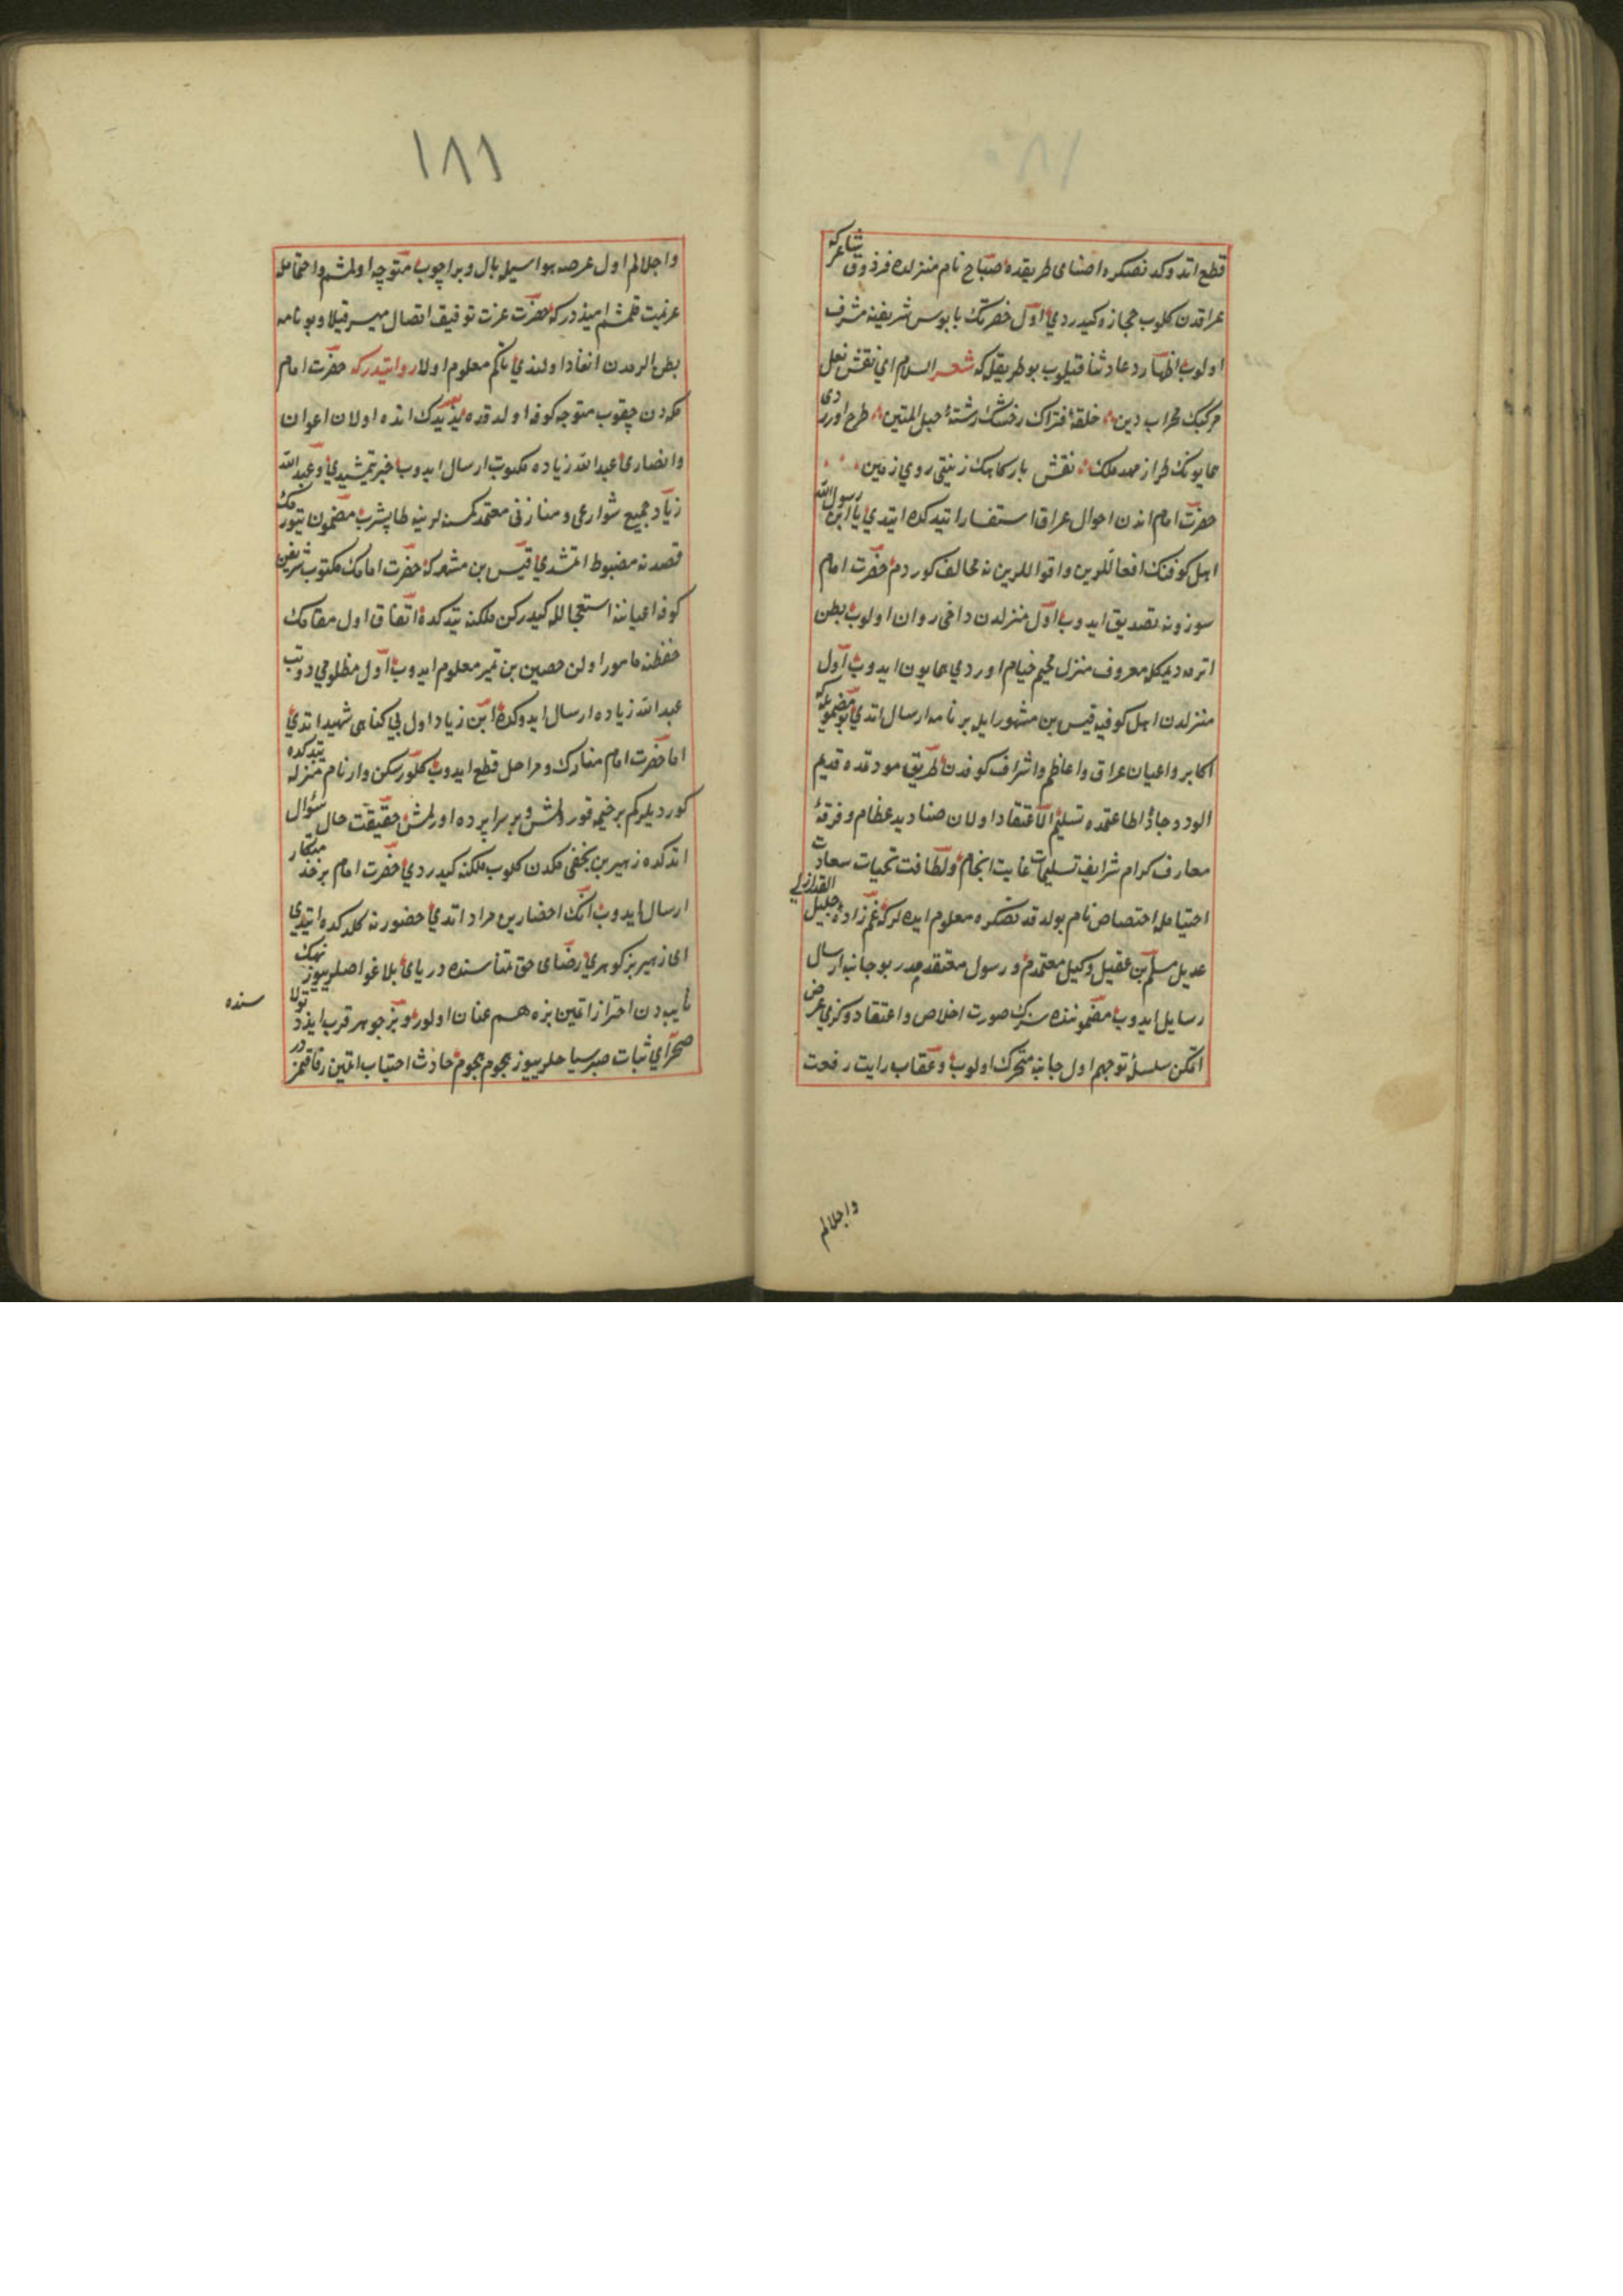 ١٨٠
قطع اتدوكدنصكره اصناى طريقده صباح نام منزلده فرذوق شاعركه
عراقدن كلوب حجازه كيدردي اول حضرتك پابوس شريفينه مشرف
اولوب اظهار دعا وثنا قيلوب بو طريقله كه شعر السلام اي نقش نعل
مركبك محراب دين حلقهٔ فتراك رخشك رشتهٔ حبل المتين طرح اوردى
همايونك طراز مهد ملك نقش باركاهك زينتى روي زمين
حضرت امام اندن احوال عراق استفسار اتيدكده ايتدي يا ابن رسول الله
اهل كوفنك افعاللرين واقواللرينه مخالف كوردم حضرت امام
سوزونه تصديق ايدوب اول منزلدن داخى روان اولوب بطن
الرمه ديمكله معروف منزل مخيم خيام اوردي همايون ايدوب اول
منزلدن اهل كوفيه قيس بن مشهور ايله بر نامه ارسال اتدي بو مضمونله كه
اكابر واعيان عراق واعاظم واشراف كوفدن طريق مودتده قديم
الود وجادۀ اطاعتمده تسليم الاعتقاد اولان صناديد عظام وفرقهٔ
معارف كرام شرايف تسليمات غايت انجام ولطافت تحيات سعادت
اختصاص نام بولدقدنصكره معلوم ايده لركه عم زادۀ جليل القدر
عديل مسلم بن عقيل وكيل معتمدم ورسول معتقدمدر بو جانبه ارسال
رسايل ايدوب مضموننده سزك صورت اخلاص واعتقادوكزي عرض
اتكن سلسلهٔ توجهم اول جانبه متحرك اولوب وعقاب رايت رفعت
واجلالم
١٨١
واجلالم اول عرصه هواسيله بال وپر اچوب متوجه اولمشم واحتمامله
عزيمت قلمشم اميددركه حضرت عزت توفيق اتصال ميسر قيلا وبو نامه
بطن الرمدن انفاد اولندي تاكم معلوم اولا روايتدركه حضرت امام
مكه دن چقوب متوجه كوفه اولدقده يزيدك انده اولان اعوان
وانصارى عبد الله زياده مكتوب ارسال ايدوب خبر يتمشيدي وعبد الله
زياد جميع شوارعى ومنازنى معتمد كمسنه لرينه طاپشرب مضمون تيورمك
قصدنه مضبوط اتمشدي قيس بن مشعر كه حضرت امامك مكتوب شريفن
كوفه اعياننه استعجالله كيدركن ملكنه يتدكده اتفاق اول مقامك
حفظنه مامور اولن حصين بن نمير معلوم ايدوب اول مظلومي دوتب
عبد الله زياده ارسال ايدوكده ابن زياد اول بي كناهى شهيد اتدي
اما حضرت امام منازك ومراحل قطع ايدوب كلوركن وارنام منزله يتدكده
كورديلركم بر خيمه قورولمش وبر سراپرده اورلمش حقيقت حال سؤال
اتدكده زهير بن بجفى مكه دن كلوب ملكنه كيدردي حضرت امام بر خدمتكار
ارسال ايدوب انك احضارين مراد اتدي حضورنه كلدكده ايتدي
اى زهير بز كوهري رضاى حق تمناسنده درياى بلا غواصلريیوز نهنك
نايبه دن احتراز اتمين بزه هم عنان اولور وبز جوهر قرب ايزد تولا
سنده
صحراي ثبات صبر سياحلريیوز هجوم نجوم حادث اجتناب اتمين رفاقتمزدر